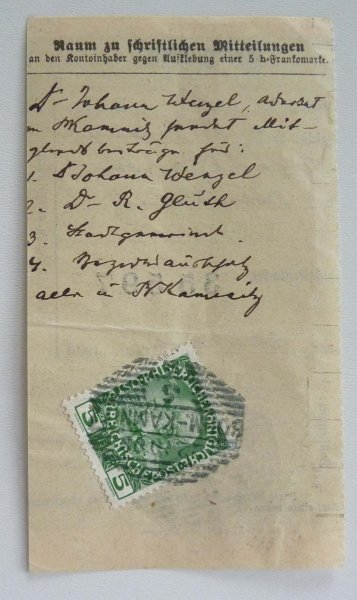 Raum zu schriftlichen Mitteilungen
an den Kontoinhaber gegen Aufklebung einer 5 h-Frankomarke.
Dr Johann Wenzel, Advokat
in B Kamnitz sendet Mit-
gliedsbeiträge für:
1. Dr Johann Wenzel
2. Dr R. Gluth
3. Stadtgemeinde
4. Bezirksausschuß
alle in B Kamnitz
5
5